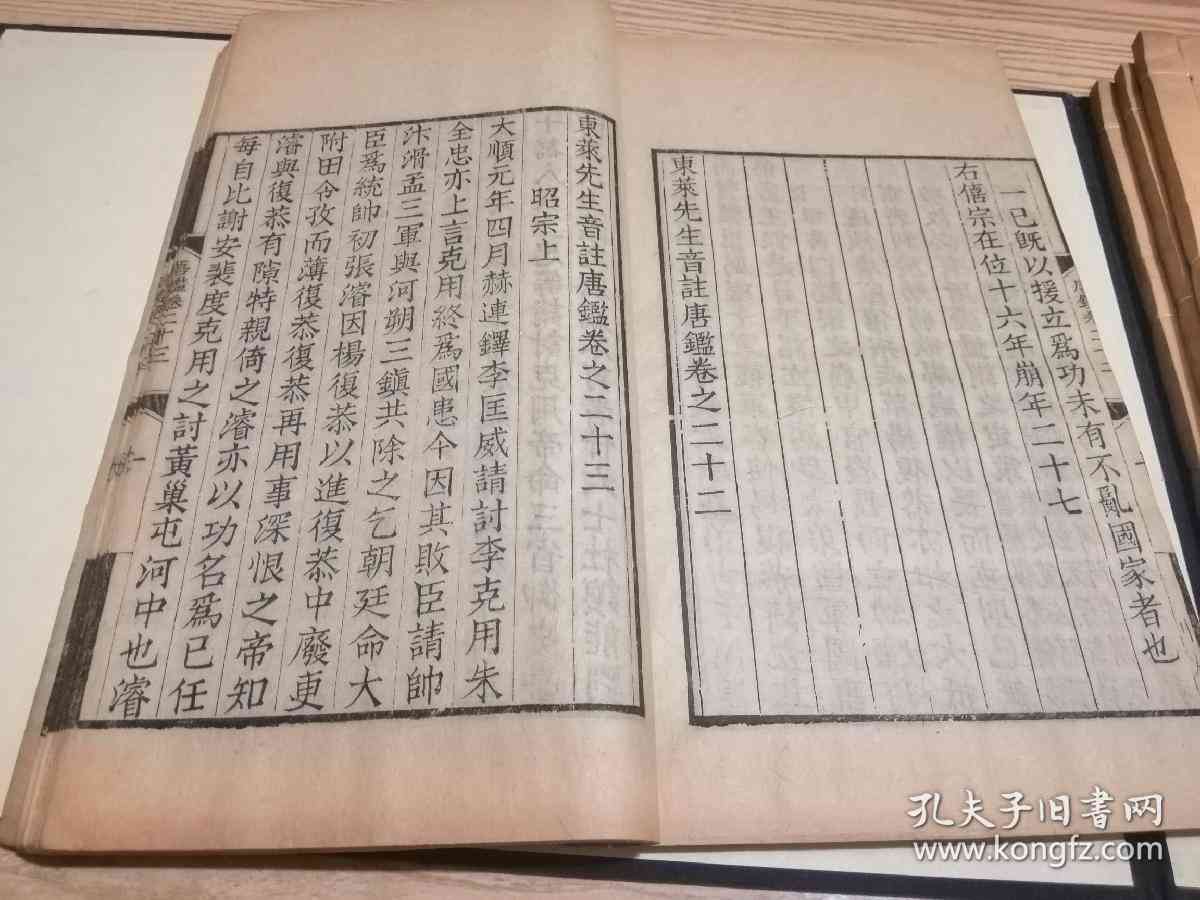 一已旣以援立爲功未有不亂國家者也
右僖宗在位十六年崩年二十七
東萊先生音註唐鑑卷之二十二
東萊先生音註唐鑑卷之二十三
昭宗上
大順元年四月赫連鐸李匡威請討李克用朱
全忠亦上言克用終爲國患今因其敗臣請帥
汴滑孟三軍與河朔三鎮共除之乞朝廷命大
臣爲統帥初張濬因楊復恭以進復恭中廢更
附田令孜而薄復恭復恭再用事深恨之帝知
濬與復恭有隙特親倚之濬亦以功名爲已任
每自比謝安裴度克用之討黃巢屯河中也濬
唐鑑卷二十三
孔夫子旧书网
www.kongfz.com